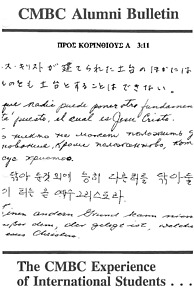 CMBC Alumni Bulletin
ΠΡΟΣ ΚΟΡΙΝΘΙΟΥΣ Α 3:11
ス・キリストが建てられた土台のほかには
ものも土台とすることはできない。
que nadie puede poner otro fundamento
puesto, el cual es Jesu Cristo.
никто не может положить
кроме положенного, кот
Христос.
닦아 둔 것 외에 능히 다른 터를 닦아 둘
이 터는 곧 예수 그리스도라.
Einen andern Grund kann
dem, der gelegt ist, welcher
Christus.
The CMBC Experience
of International Students . . .